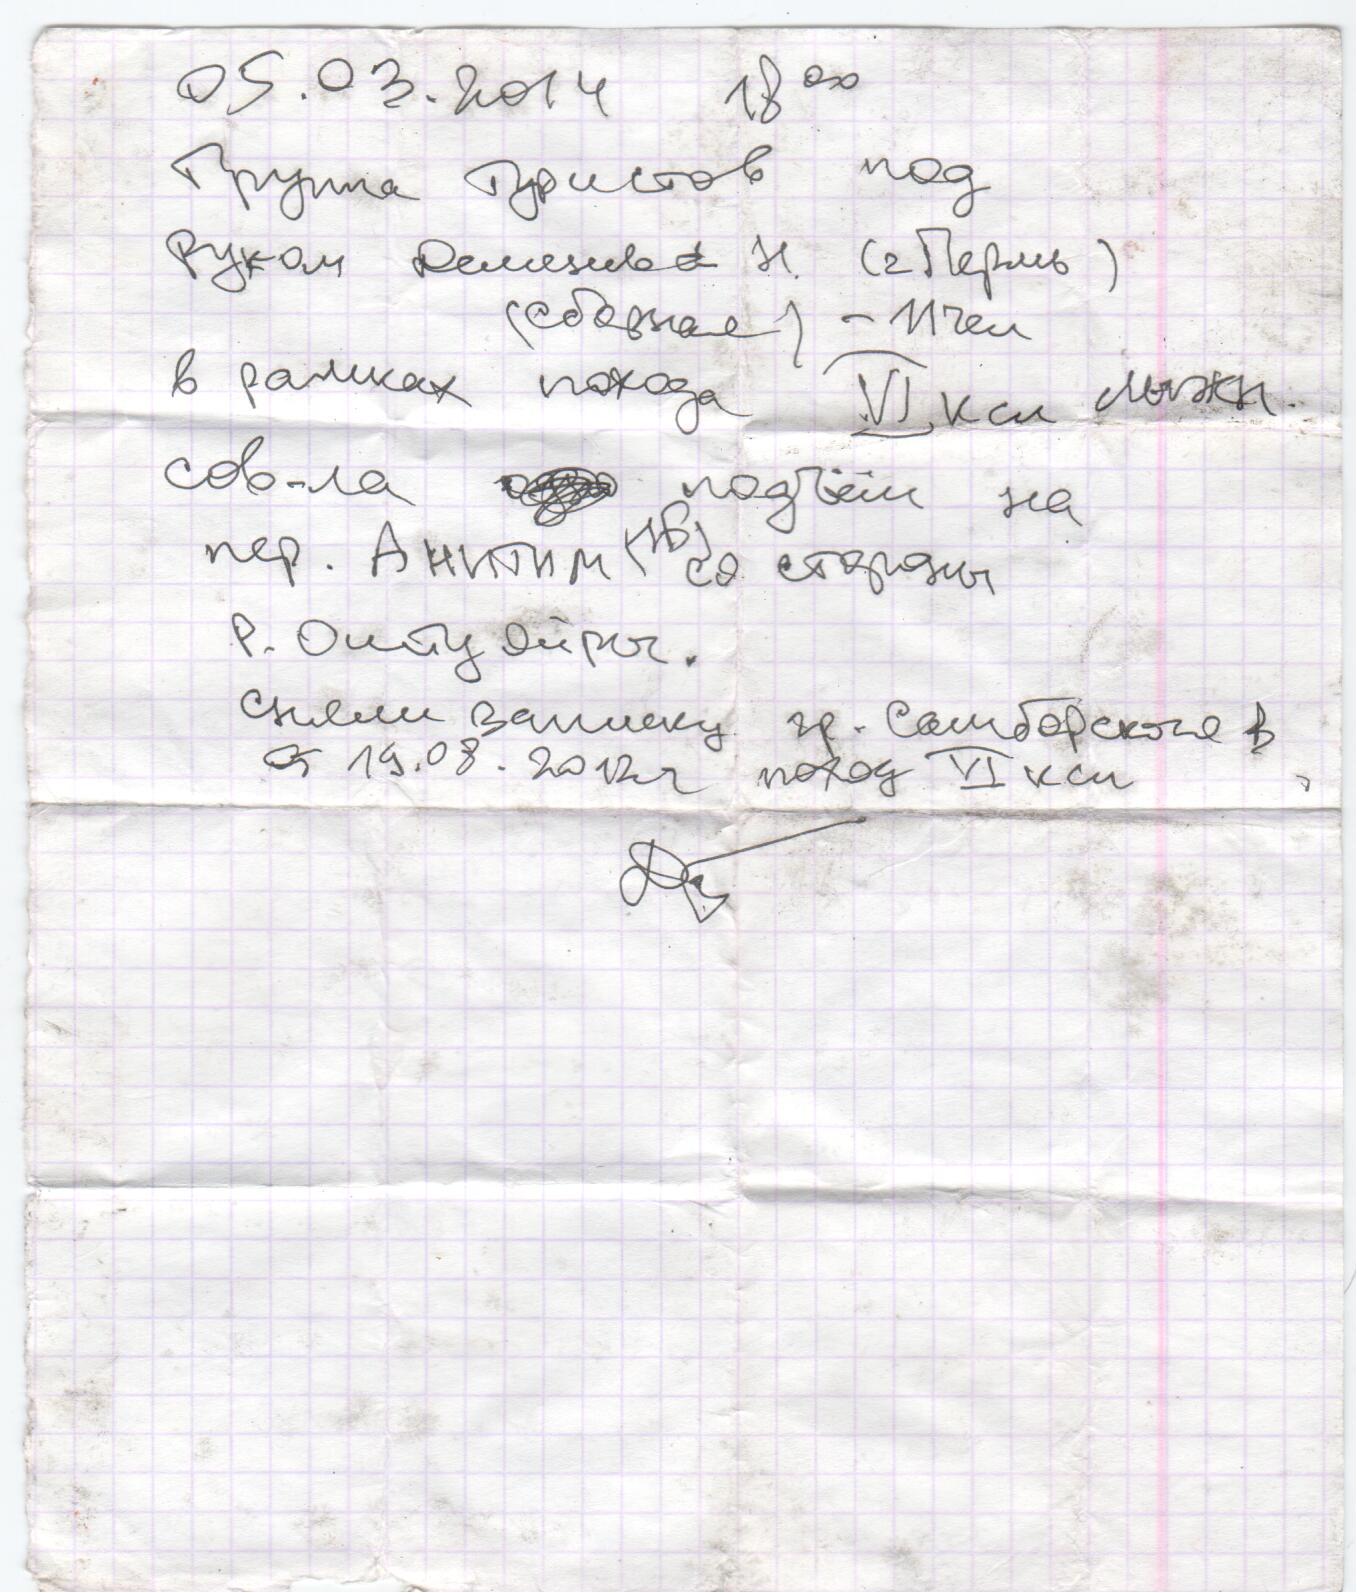 05.03.2014 18 00
Группа туристов под
руком Н. (г Пермь)
(сборная) - 11 чел
в рамках похода VI к сл лыжн.
сов-ла подъём на
пер. АНИТИМ (1Б) со стороны
р.
сняли записку гр. Самборского в
от 19.08.2012 г поход VI к сл